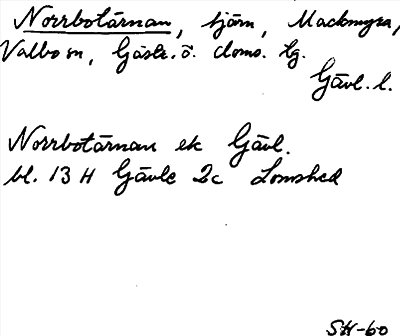 Norrbotärnan, tjärn, Mackmyra,
Valbo sn, Gästr. ö. doms. tg.
Gävl. l.
Norrbotärnan ek Gävl.
bl. 13 H Gävle 2c Lomshed
StH-60